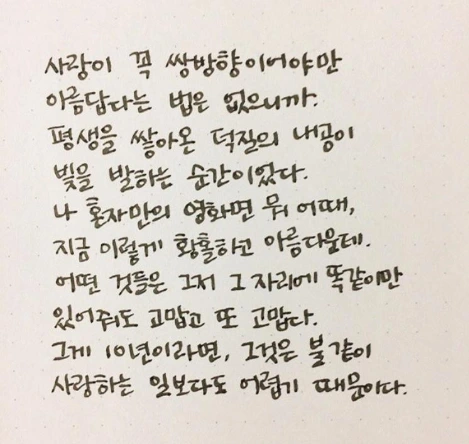 사랑이 꼭 쌍방향이어야만
아름답다는 법은 없으니까.
평생을 쌓아온 덕질의 내공이
빛을 발하는 순간이었다.
나 혼자만의 영화면 뭐 어때,
지금 이렇게 황홀하고 아름다운데.
어떤 것들은 그저 그 자리에 똑같이만
있어줘도 고맙고 또 고맙다.
그게 10년이라면, 그것은 불같이
사랑하는 일보다도 어렵기 때문이다.